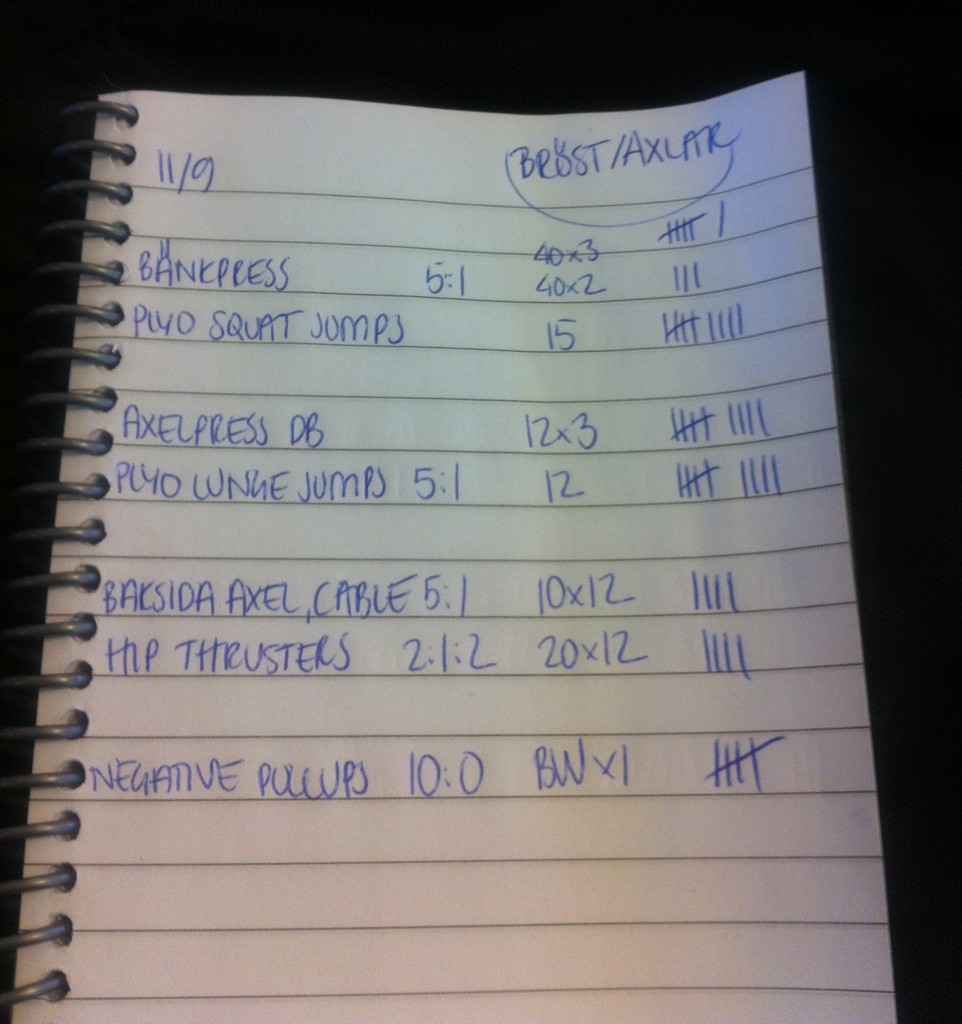 11/9 BRÖST/AXLAR
40x3 𝍸 |
BÄNKPRESS 5:1 40x2 |||
PLYO SQUAT JUMPS 15 𝍸 ||||
AXELPRESS DB 12x3 𝍸 ||||
PLYO LUNGE JUMPS 5:1 12 𝍸 ||||
BAKSIDA AXEL, CABLE 5:1 10x12 ||||
HIP THRUSTERS 2:1:2 20x12 ||||
NEGATIVE PULLUPS 10:0 BW x1 𝍸